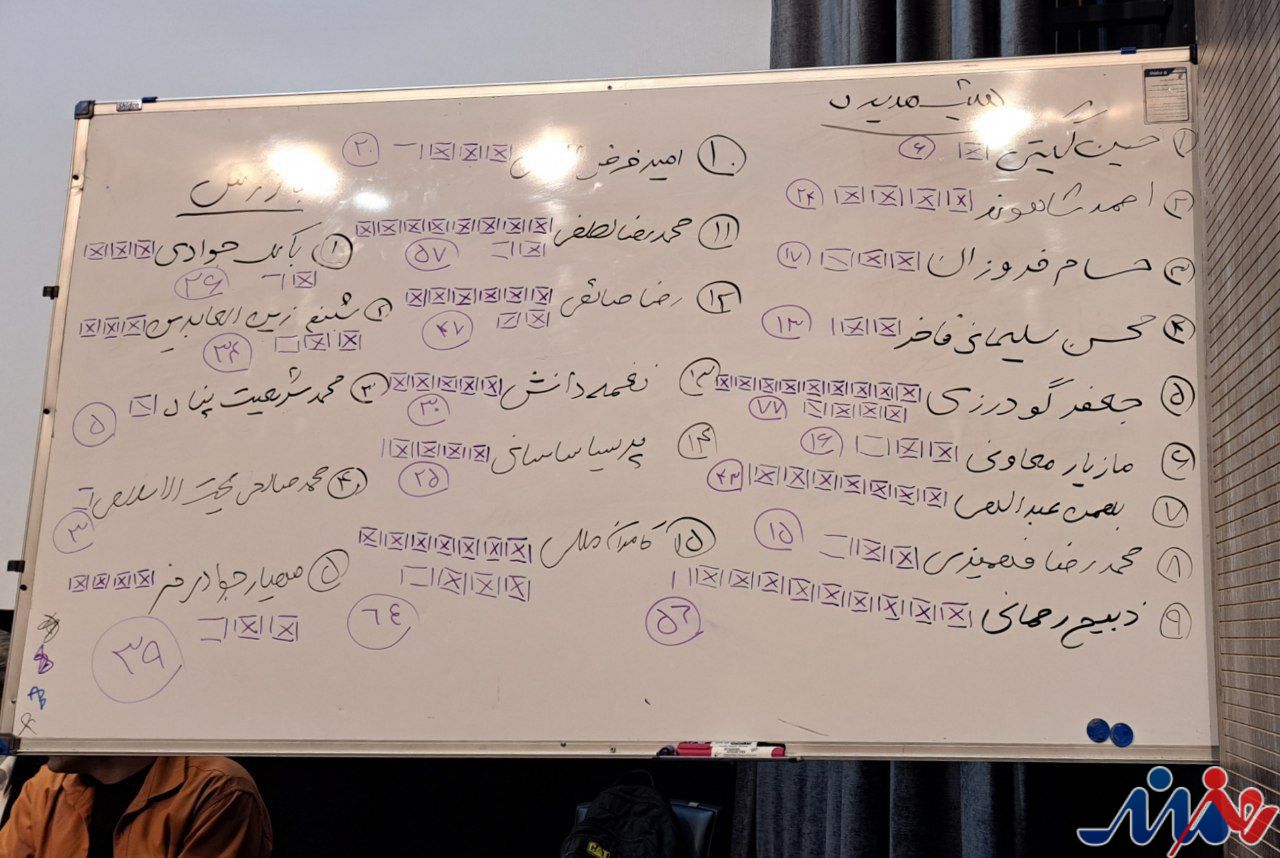 هیئت مدیره
۱ حسین گیتی ۶
۲ احمد شاهوند ۲۴
۳ حسام فروزان ۱۷
۴ محسن سلیمانی فاخر ۱۳
۵ جعفر گودرزی ۷۷
۶ مازیار معاونی ۱۶
۷ بهمن عبداللهی ۴۳
۸ محمدرضا فهمیزی ۱۵
۹ ذبیح رحمانی ۵۶
۱۰ امیر فرض ۲۰
۱۱ محمدرضا لطفی ۵۷
۱۲ رضا صائمی ۴۷
۱۳ نغمه دانش ۳۰
۱۴ پرسیا ساسانی ۲۵
۱۵ ۶۴
بازرس
۱ بابک جوادی
۲۶
۲ شبنم زین العابدین
۳۴
۳ محمد شریعت پناه ۵
۴ محمد صالحی حجت الاسلامی ۳
۵ مهیار جوادی فر
۳۹
هنرمند